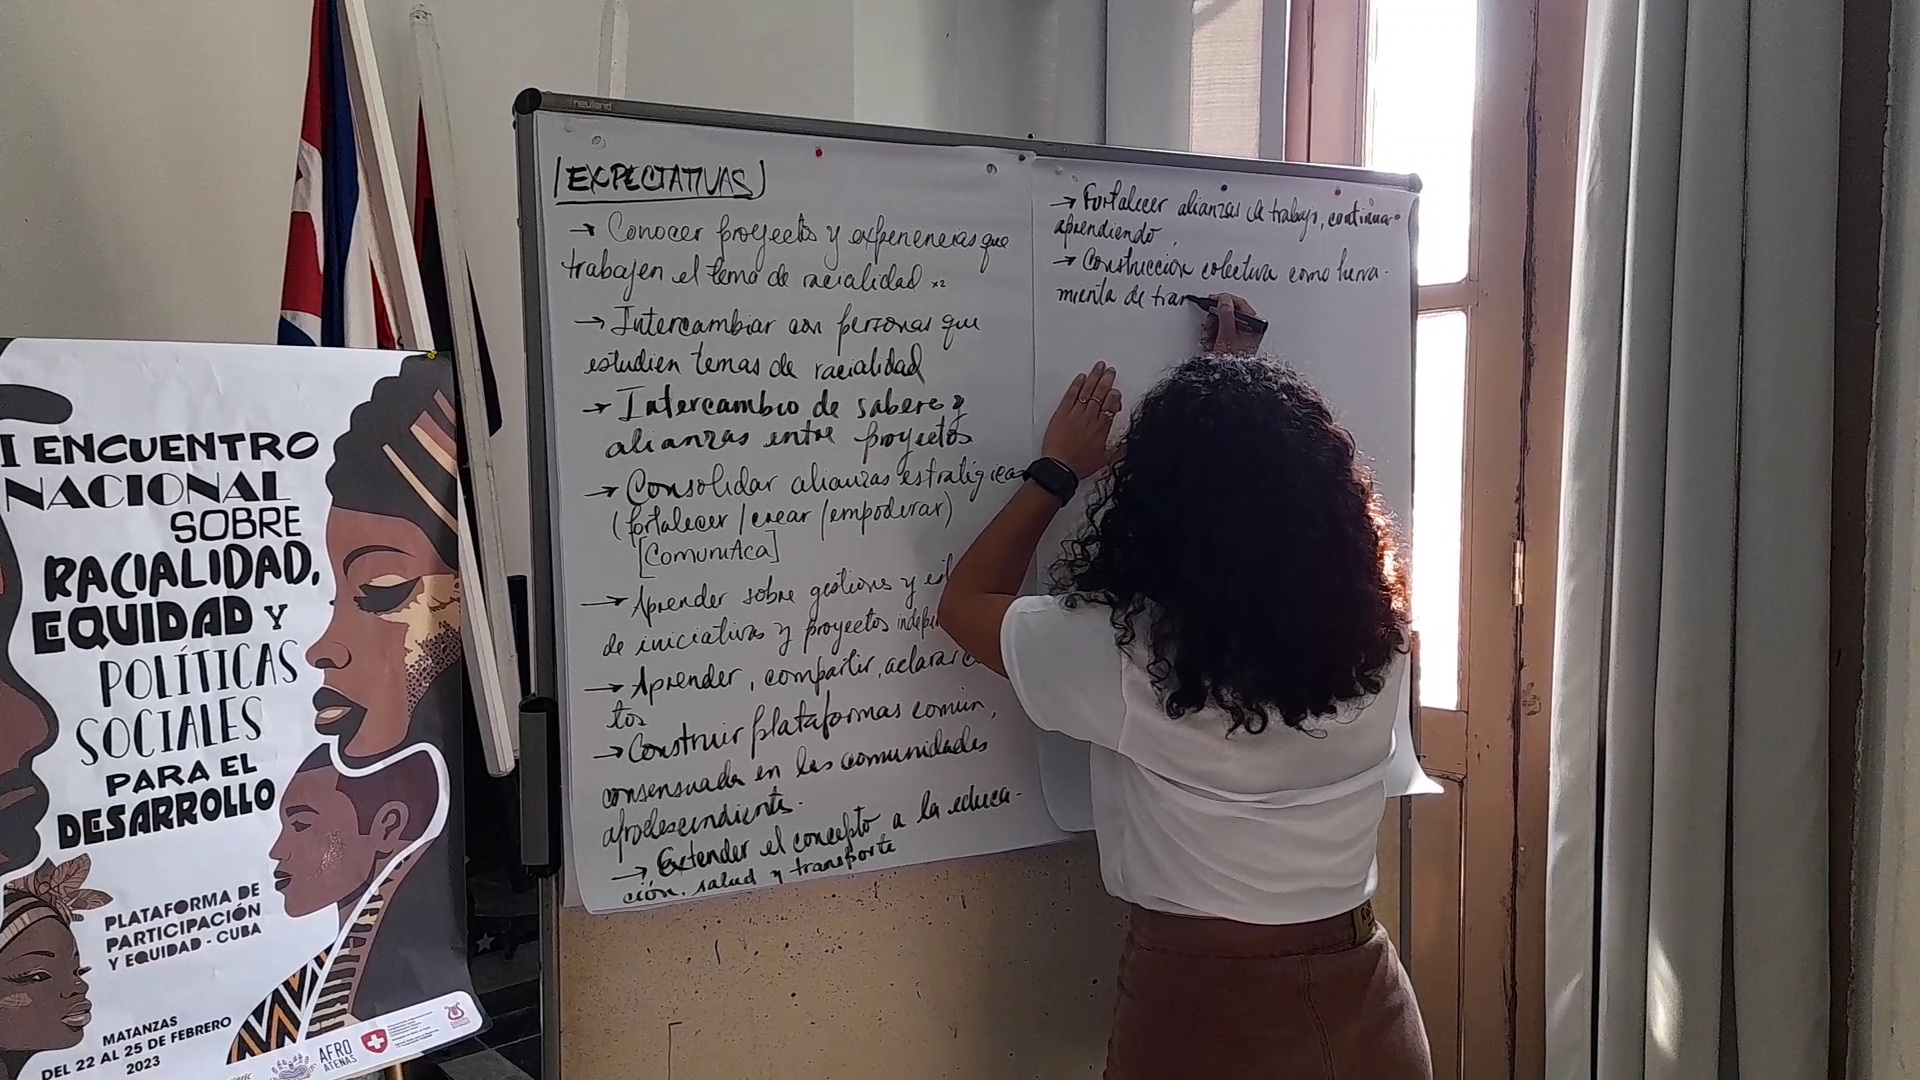 I ENCUENTRO
NACIONAL
SOBRE
RACIALIDAD,
EQUIDAD Y
POLÍTICAS
SOCIALES
PARA EL
DESARROLLO
PLATAFORMA DE
PARTICIPACIÓN
Y EQUIDAD - CUBA
MATANZAS
DEL 22 AL 25 DE FEBRERO
2023
AFRO
ATENAS
neuland
EXPECTATIVAS
→ Conocer proyectos y experiencias que
trabajen el tema de racialidad x2
→ Intercambiar con personas que
estudien temas de racialidad
→ Intercambio de saberes y
alianzas entre proyectos
→ Consolidar alianzas estratégicas
(fortalecer / crear / empoderar)
[Comunitaca]
→ Aprender sobre gestiones y
de iniciativas y proyectos
→ Aprender, compartir, aclarar
tos
→ Construir plataformas común,
consensuada en las comunidades
afrodescendientes.
→ Extender el concepto a la educa-
ción, salud y transporte
→ Fortalecer alianzas de trabajo, continuar
aprendiendo,
→ Construcción colectiva como herra-
mienta de tran